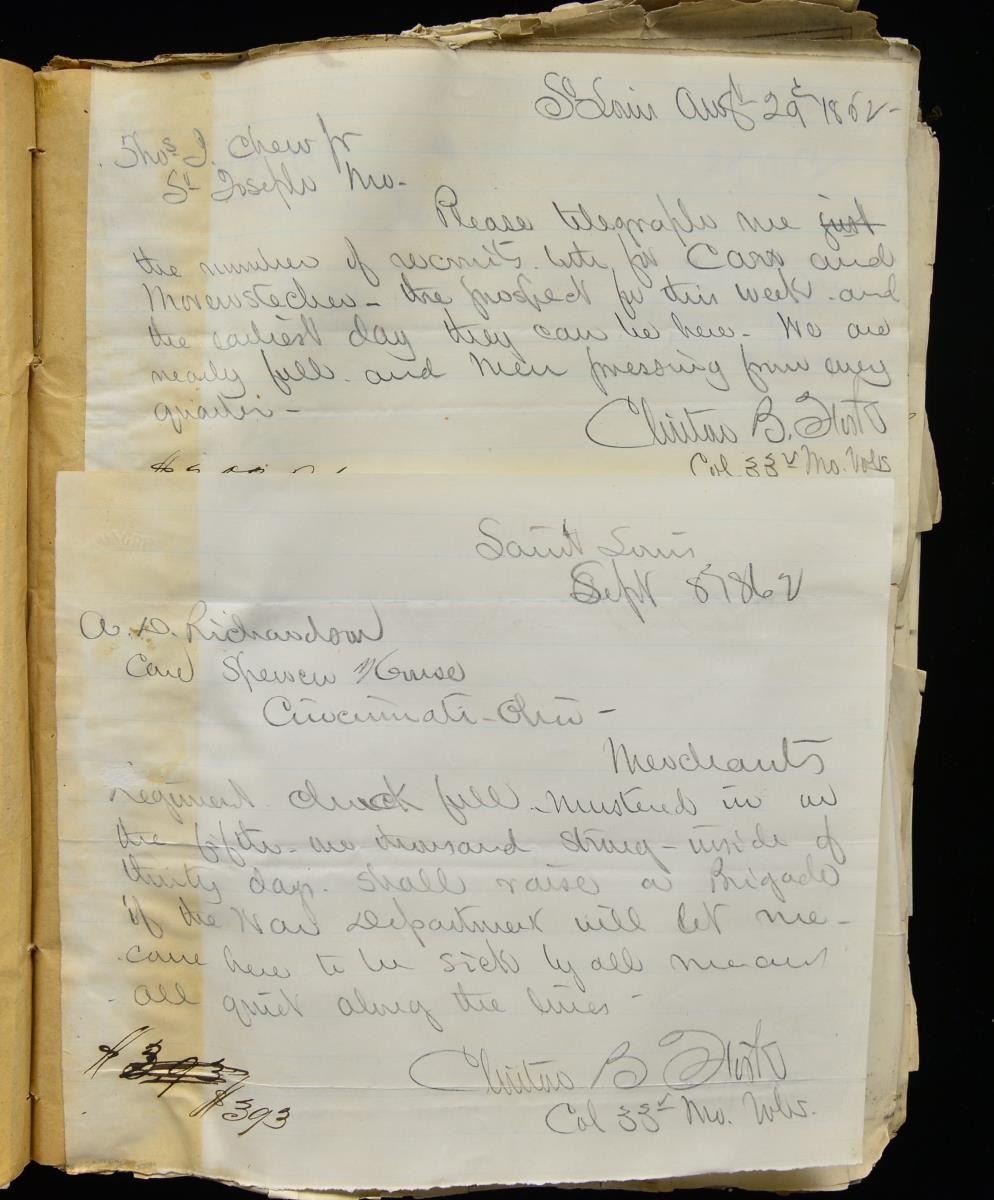 St Louis Augt 29th 1862-
Thos J. Chew Jr
St Joseph Mo-
Please telegraph me just
the number of recruits both for Carr and
Morenstecher - the prospect for this week - and
the earliest day they can be here - We are
nearly full - and Men pressing from every
quarter -
Clinton B. Fisk
Col 33d Mo. Vols
Saint Louis
Sept 8 1862
A. D. Richardson
Care Spencer House
Cincinnati - Ohio -
Merchants
Regiment chuck full - mustered in on
the fifth - one thousand strong - inside of
thirty days - shall raise a Brigade
if the War Department will let me -
come here to be sick by all means
- all quiet along the lines -
Clinton B Fisk
Col 33d Mo. Vols.
$393
$393